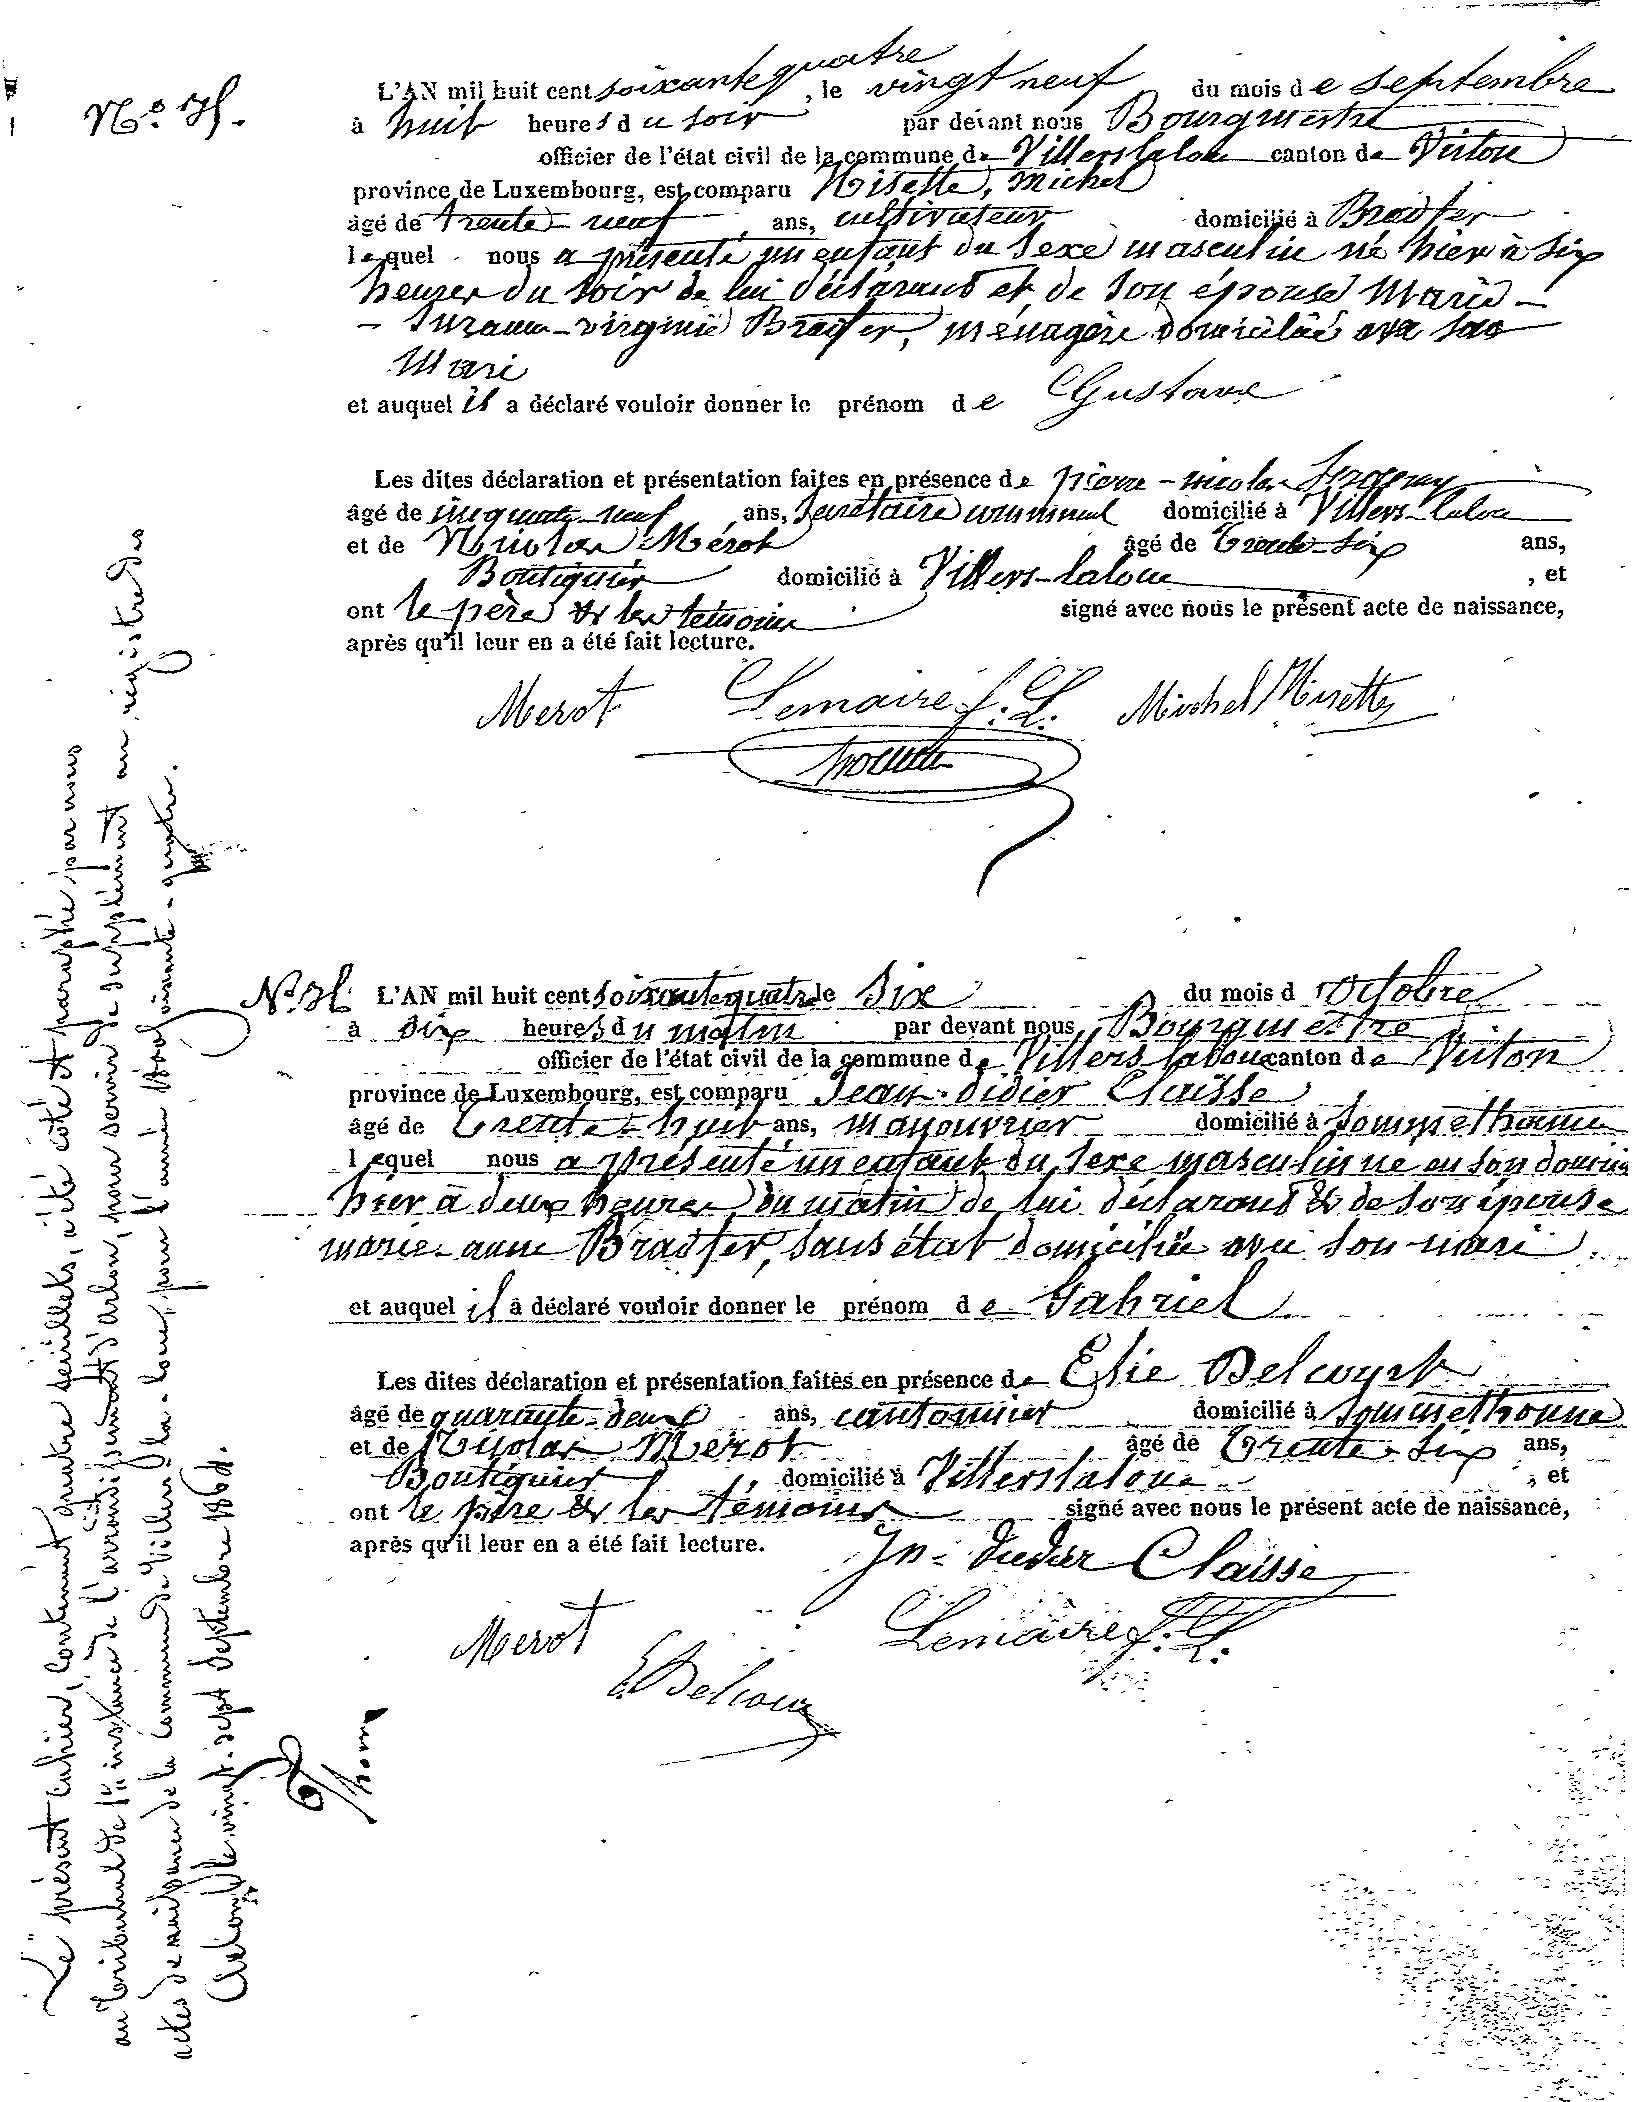 L'AN mil huit cent soixante quatre, le vingt neuf du mois de septembre
à huit heures du soir par devant nous Bourgmestre
officier de l'état civil de la commune de Villerslaloue canton de Virton
province de Luxembourg, est comparu Nisette, Michel
âgé de trente-neuf ans, cultivateur domicilié à Bradfer
lequel nous a présenté un enfant du sexe masculin né hier à six
heures du soir de lui déclarant et de son épouse Marie-
- virginie Bradfer, ménagère domiciliée avec son
Mari
et auquel il a déclaré vouloir donner le prénom de Gustave
Les dites déclaration et présentation faites en présence de pierre-nicolas
âgé de cinquante-neuf ans, Secrétaire communal domicilié à Villers-laloue
et de Nicolas Mérot âgé de Trente-six ans,
Boutiquier domicilié à Villers-laloue, et
ont le père & les témoins signé avec nous le présent acte de naissance,
après qu'il leur en a été fait lecture.
Merot Lemaire f. L. Michel Nisette
L'AN mil huit cent soixante quatre le six du mois d'Octobre
à dix heures du matin par devant nous Bourgmestre
officier de l'état civil de la commune de Villers laloue canton de Virton
province de Luxembourg, est comparu Jean-didier Claisse
âgé de Trente-huit ans, manouvrier domicilié à Sommethonne
lequel nous a présenté un enfant du sexe masculin né en son
hier à deux heures du matin de lui déclarant & de son épouse
marie-anne Bradfer, sans état domiciliée avec son mari
et auquel il a déclaré vouloir donner le prénom de Gabriel
Les dites déclaration et présentation faites en présence de Elie Delcourt
âgé de quarante-deux ans, cantonnier domicilié à Sommethonne
et de Nicolas Merot âgé de Trente-six ans,
Boutiquier domicilié à Villerslaloue, et
ont le père & les témoins signé avec nous le présent acte de naissance,
après qu'il leur en a été fait lecture.
Jn- didier Claisse
Merot Lemaire f. L.
E. Delcour
Le présent cahier, contenant quatre feuillets, a été coté et paraphé par nous
au tribunal de 1re instance de l'arrondissement d'arlon, pour servir de supplément au registre des
actes de naissance de la commune de Villers-la-loue, pour l'année 1800 soixante-quatre.
Arlon, le vingt-sept Septembre 1864.